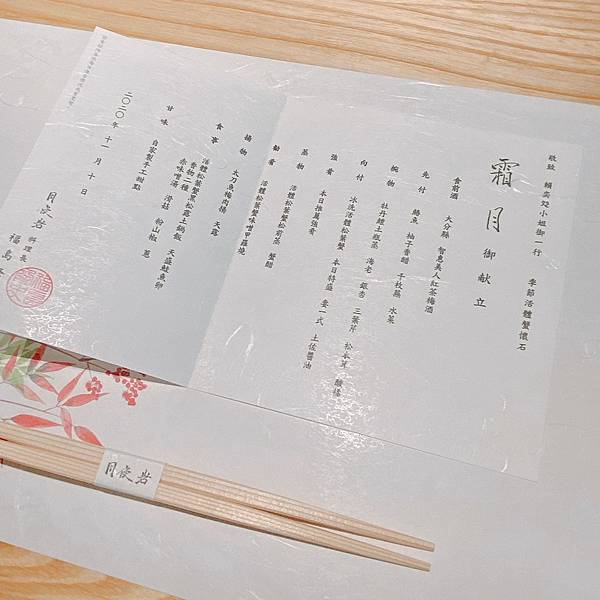 敬致 賴奕彣小姐御一行 季節活體蟹懷石
霜月御献立
食前酒 大分縣 智惠美人紅茶梅酒
先付 鰆魚 柚子香醋 千枚蕪 水菜
椀物 牡丹鱧土瓶蒸 海老 銀杏 三葉芹 松本茸 酸橘
向付 冰洗活體松葉蟹 本日特盛 妻一式 土佐醬油
強肴 本日推薦強肴
蒸物 活體松葉蟹松前蒸 蟹醋
動肴 活體松葉蟹味噌甲羅燒
揚物 太刀魚梅肉揚 天露
食事 活體松葉蟹黑松露土鍋飯 天盛鮭魚卵
香物二種
赤味噌湯 滑菇 粉山椒 蔥
甘味 自家製手工甜點
二〇二〇年 十一月 十日
月岩 料理長 福島
月岩